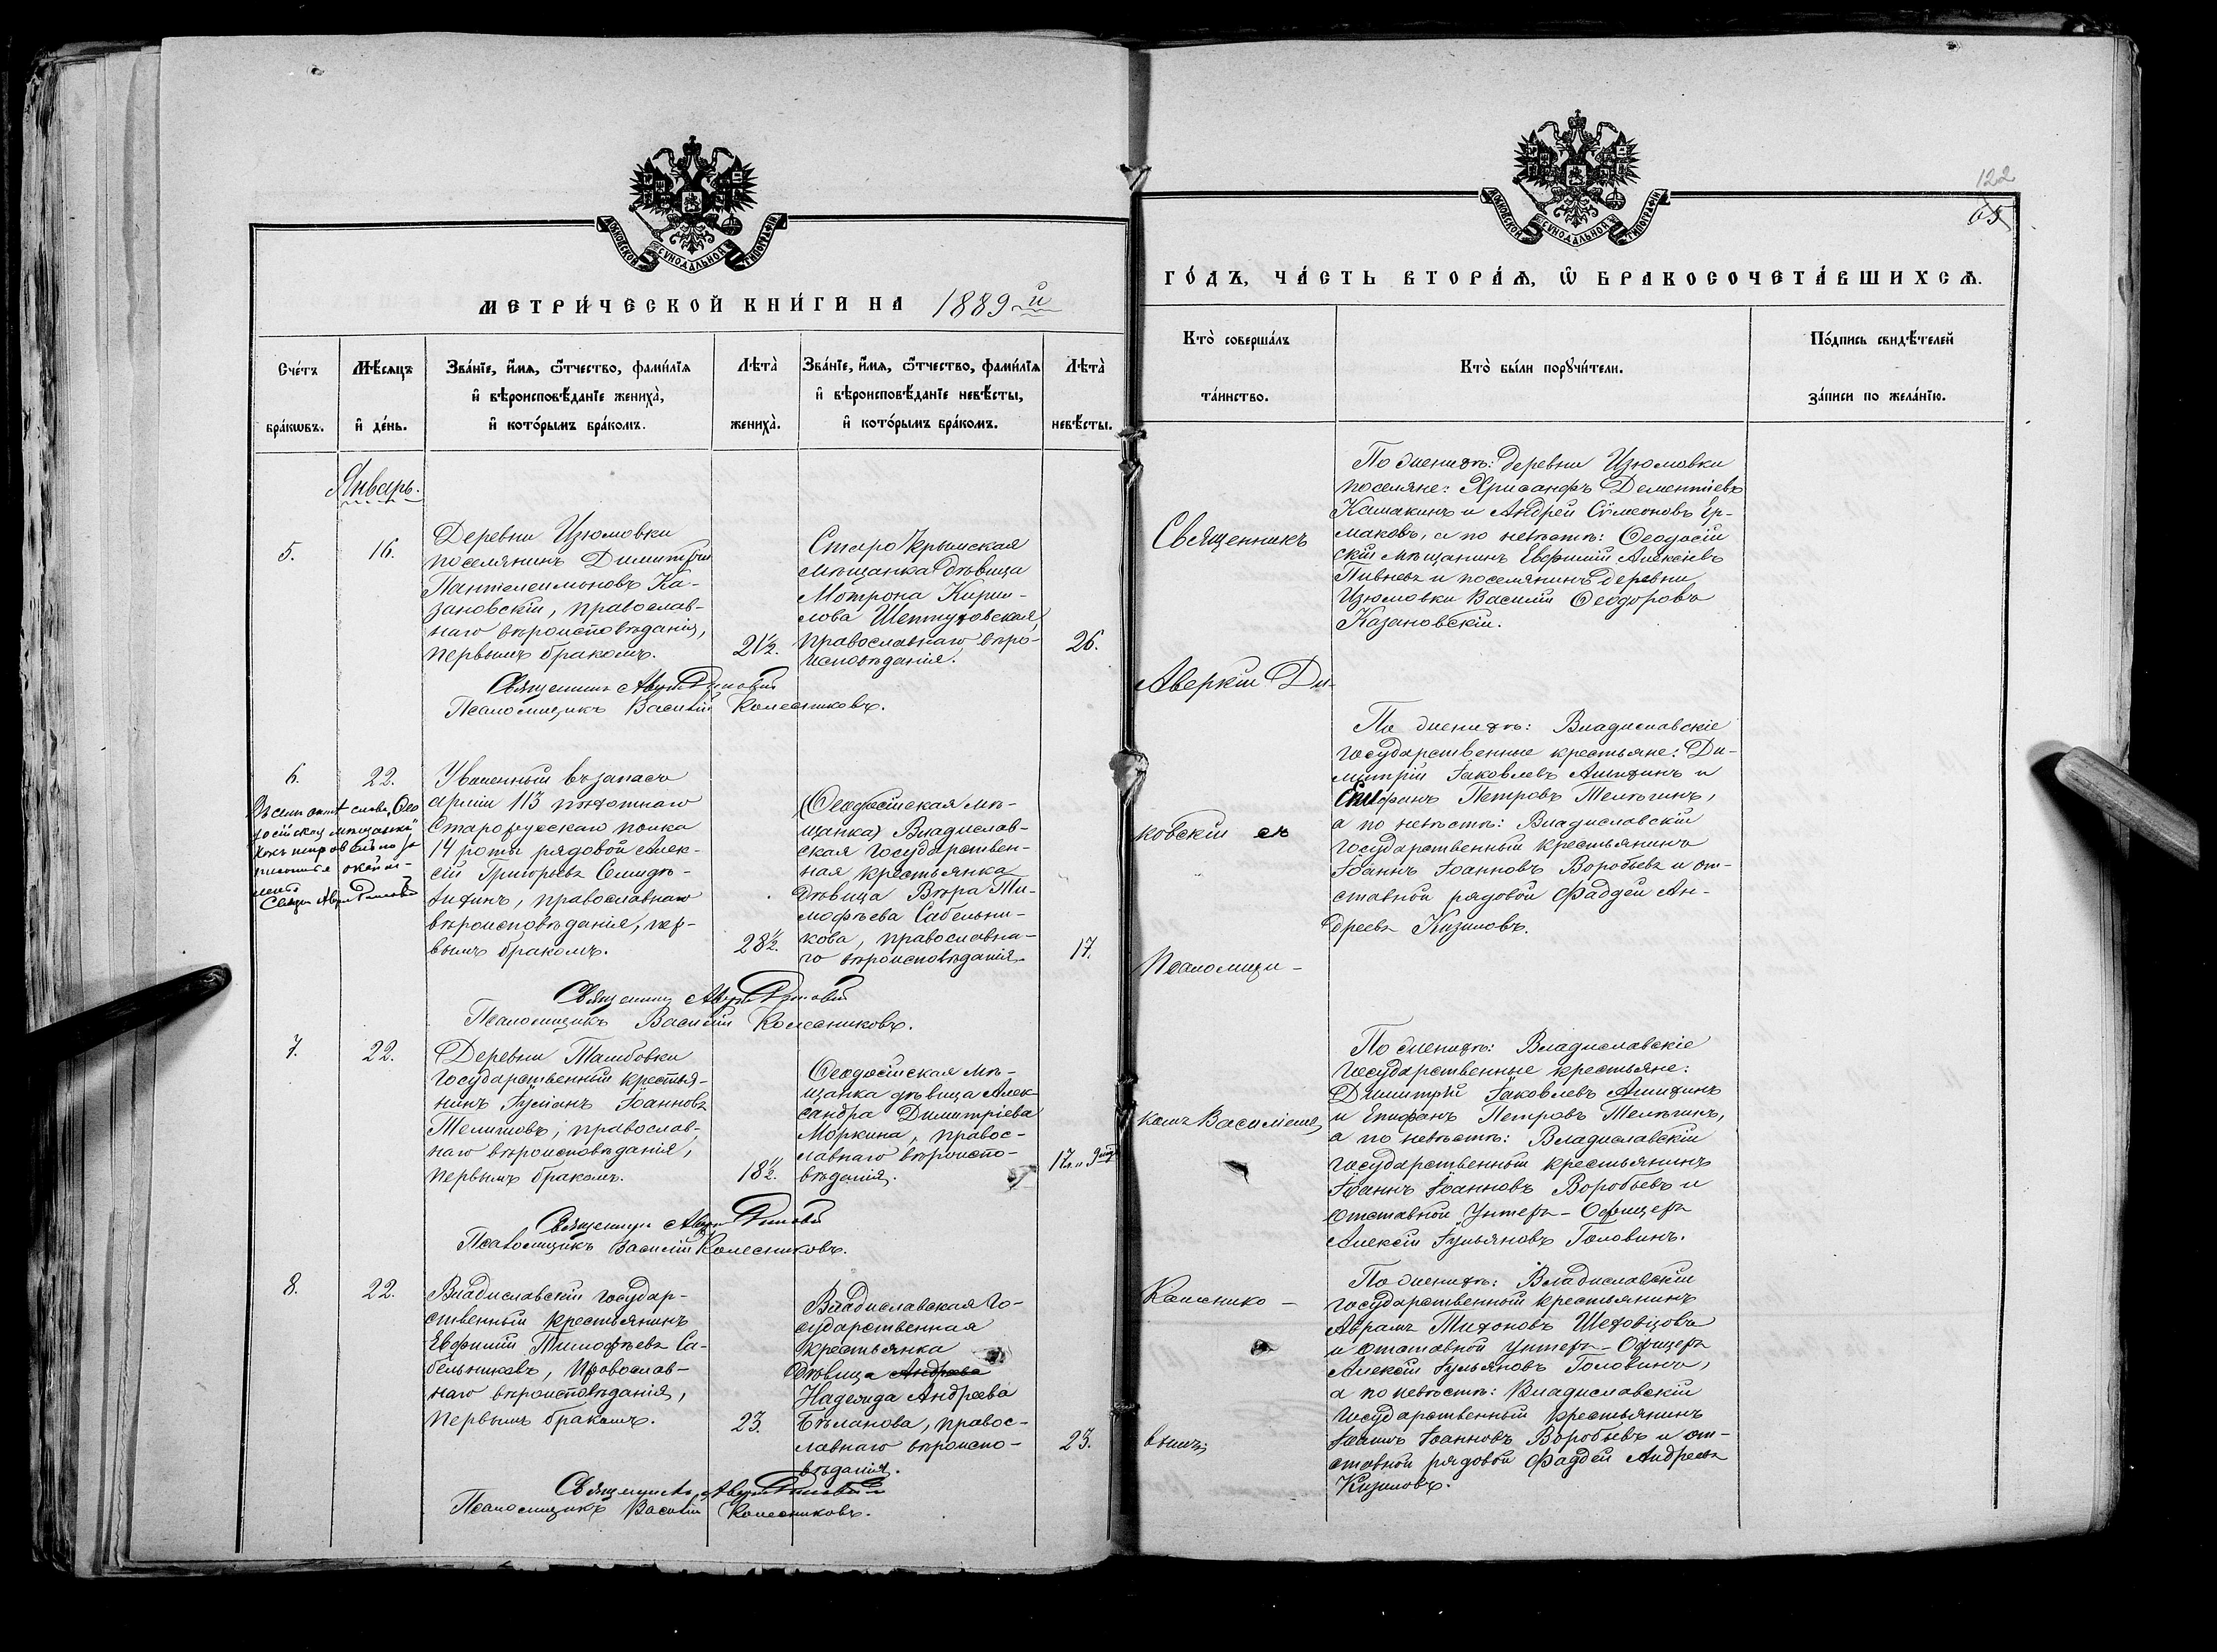 МОСКОВСКОЙ СУНОДАЛЬНОЙ ТИПОГРАФІИ
МЕТРИ́ЧЕСКОЙ КНИ́ГИ НА 1889й
Сче́тъ бра́кωвъ.
Мѣ́сяцъ и҆ де́нь.
Зва́нїе, и҆́мѧ, ѻ҆́тчество, фами́лїѧ
и҆ вѣроисповѣ́данїе жениха̀,
и҆ кото́рымъ бра́комъ.
Лѣта̀ жениха̀.
Зва́нїе, и҆́мѧ, ѻ҆́тчество, фами́лїѧ
и҆ вѣроисповѣ́данїе невѣ́сты,
и҆ кото́рымъ бра́комъ.
Лѣта̀ невѣ́сты.
Январь.
5.
16.
Деревни Изюмовки
поселянинъ Димитрій
Пантелеимоновъ Ка-
зановскій, православ-
наго вѣроисповѣданія,
первымъ бракомъ.
21½.
Старокрымская
мѣщанка дѣвица
Мотрона Кирил-
лова Шептуховская,
православнаго вѣро-
исповѣданія.
26.
Священникъ
Псаломщикъ Василій Колесниковъ.
6.
22.
Въ сей слова „Ѳео
досійская мѣщанка"
Уволенный въ запасъ
арміи 113 пѣхотнаго
Старорусскаго полка
14 роты рядовой Алек-
сій Григорьевъ Семидѣ-
лихинъ, православнаго
вѣроисповѣданія, пер-
вымъ бракомъ.
28½.
(Ѳеодосійская мѣ-
щанка) Владислав-
ская государствен-
ная крестьянка
дѣвица Вѣра Ти-
мофѣева Сабельни-
кова, православна-
го вѣроисповѣданія.
17.
Священникъ
Псаломщикъ Василій Колесниковъ.
7.
22.
Деревни Тамбовки
государственный крестья-
нинъ Іуліанъ Іоанновъ
православ-
наго вѣроисповѣданія,
первымъ бракомъ.
18½.
Ѳеодосійская мѣ-
щанка дѣвица Алек
сандра Димитріева
Моркина, правос-
лавнаго вѣроиспо-
вѣданія.
Священникъ
Псаломщикъ Василій Колесниковъ.
8.
22.
Владиславскій государ-
ственный крестьянинъ
Евфимій Тимофѣевъ Са-
бельниковъ, православ-
наго вѣроисповѣданія,
первымъ бракомъ.
23.
Владиславская го-
сударственная
крестьянка
дѣвица Андреева
Надежда Андреева
Бѣланова, правос-
лавнаго вѣроиспо-
вѣданія.
23.
Священникъ
Псаломщикъ Василій Колесниковъ.
122
65
МОСКОВСКОЙ СУНОДАЛЬНОЙ ТИПОГРАФІИ
ГО́ДЪ, ЧА́СТЬ ВТОРА́Ѧ, Ѡ҆ БРАКОСОЧЕТА́ВШИХСѦ.
Кто̀ соверша́лъ
та́инство.
Кто̀ бы́ли порꙋчи́тели.
По́дпись свидѣ́телей
за́писи по жела́нїю.
Священникъ
Аверкій Ди-
ковскій съ
псаломщи-
комъ Василіемъ
Колеснико-
вымъ;
По женихѣ: деревни Изюмовки
поселяне: Хрисанфъ Дементіевъ
Камакинъ и Андрей Сѵмеоновъ Ер-
маковъ, а по невѣстѣ: Ѳеодосій
скій мѣщанинъ Евфимій Алексіевъ
Пивневъ и поселянинъ деревни
Изюмовки Василій Ѳеодоровъ
Казановскій.
По женихѣ: Владиславскіе
государственные крестьяне: Ди-
митрій Іаковлевъ Анихинъ и
Епифанъ Петровъ Телѣгинъ,
а по невѣстѣ: Владиславскій
государственный крестьянинъ
Іоаннъ Іоанновъ Воробьевъ и от-
ставной рядовой Фаддей Ан-
дреевъ Кизиловъ.
По женихѣ: Владиславскіе
государственные крестьяне:
Димитрій Іаковлевъ Анихинъ
и Епифанъ Петровъ Телѣгинъ,
а по невѣстѣ: Владиславскій
государственный крестьянинъ
Іоаннъ Іоанновъ Воробьевъ и
отставной Унтеръ-Офицеръ
Алексій Іульяновъ Головинъ.
По женихѣ: Владиславскій
государственный крестьянинъ
Аврамъ Тихоновъ Шеховцовъ
и отставной Унтеръ-Офицеръ
Алексій Іульяновъ Головинъ,
а по невѣстѣ: Владиславскій
государственный крестьянинъ
Іоаннъ Іоанновъ Воробьевъ и от-
ставной рядовой Фаддей Андреевъ
Кизиловъ.